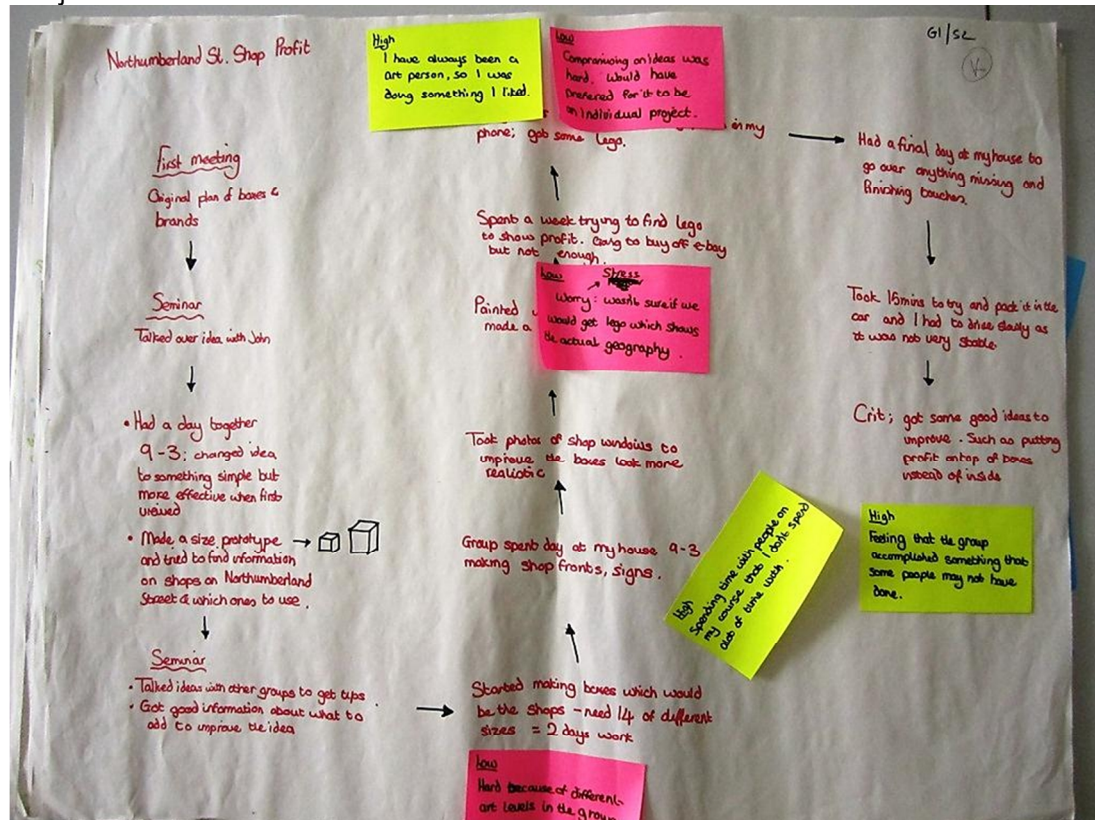 Northumberland St. Shop Profit
G1/S2
First meeting
Original plan of boxes &
brands
Seminar
Talked over idea with John
• Had a day together
9-3: changed idea
to something simple but
more effective when first
viewed
• Made a size prototype
and tried to find information
on shops on Northumberland
Street & which ones to use.
Seminar
• Talked ideas with other groups to get tips
• Got good information about what to
add to improve the idea
Started making boxes which would
be the shops - need 14 of different
sizes = 2 days work
Low
Hard because of different
art levels in the group
Group spent day at my house 9-3
making shop fronts, signs.
High
Spending time with people on
my course that I dont spend
alot of time with.
Took photos of shop windows to
improve the boxes look more
realistic
Painted
made a
Low Stress
Worry: wasn't sure if we
would get lego which shows
the actual geography.
Spent a week trying to find lego
to show profit. Going to buy off e-bay
but not enough.
in my
phone; got some lego.
High
I have always been a
art person, so I was
doing something I liked.
Low
Compromising on ideas was
hard. Would have
preferred for it to be
an individual project.
Had a final day at my house to
go over anything missing and
finishing touches.
Took 15mins to try and pack it in the
car and I had to drive slowly as
it was not very stable.
Crit; got some good ideas to
improve. Such as putting
profit on top of boxes
instead of inside
High
Feeling that the group
accomplished something that
some people may not have
done.